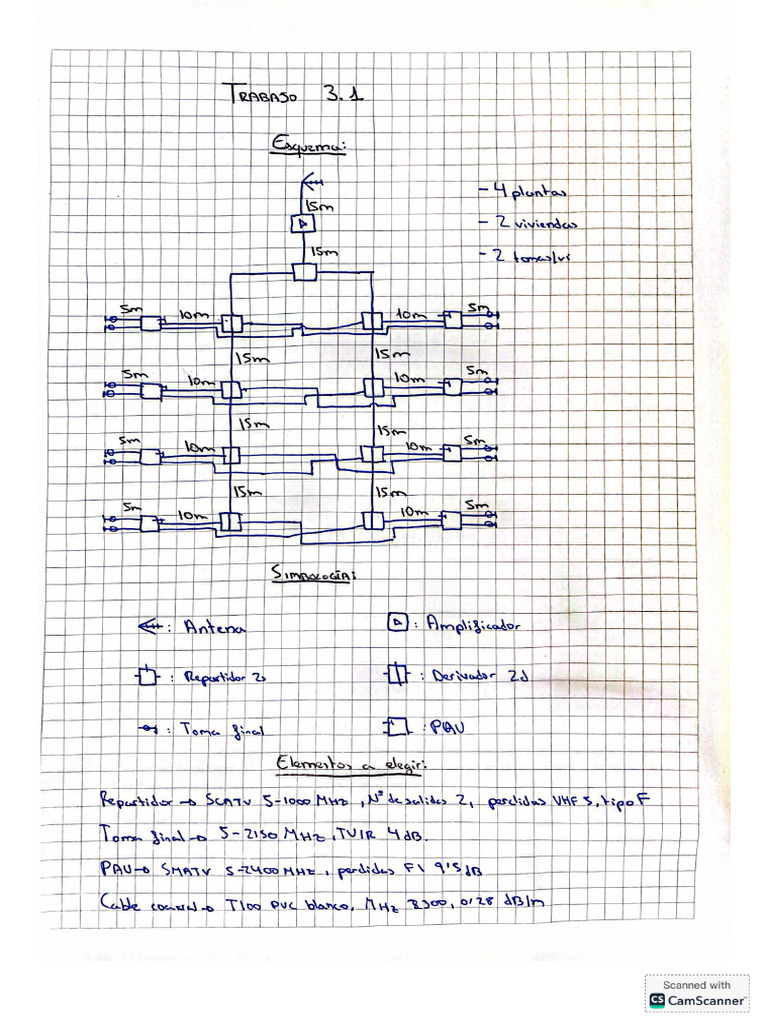 TRABAJO 3.1
Esquema:
15m
- 4 plantas
- 2 viviendas
15m
- 2 tomas/vi
5m 10m 10m 5m
15m 15m
5m 10m 10m 5m
15m 15m
5m 10m 10m 5m
15m 15m
5m 10m 10m 5m
SIMBOLOGÍA:
: Antena : Amplificador
: Repartidor 2s : Derivador 2d
: Toma final : PAU
Elementos a elegir:
Repartidor → SCATV 5-1000 MHz, Nº de salidas 2, perdidas VHF 5, tipo F
Toma final → 5-2150 MHz, TV/R 4 dB.
PAU → SMATV 5-2400 MHz, perdidas FI 9'5 dB
Cable coaxial → T100 PVC blanco, MHz 2300, 0'28 dB/m
Scanned with
CS CamScanner